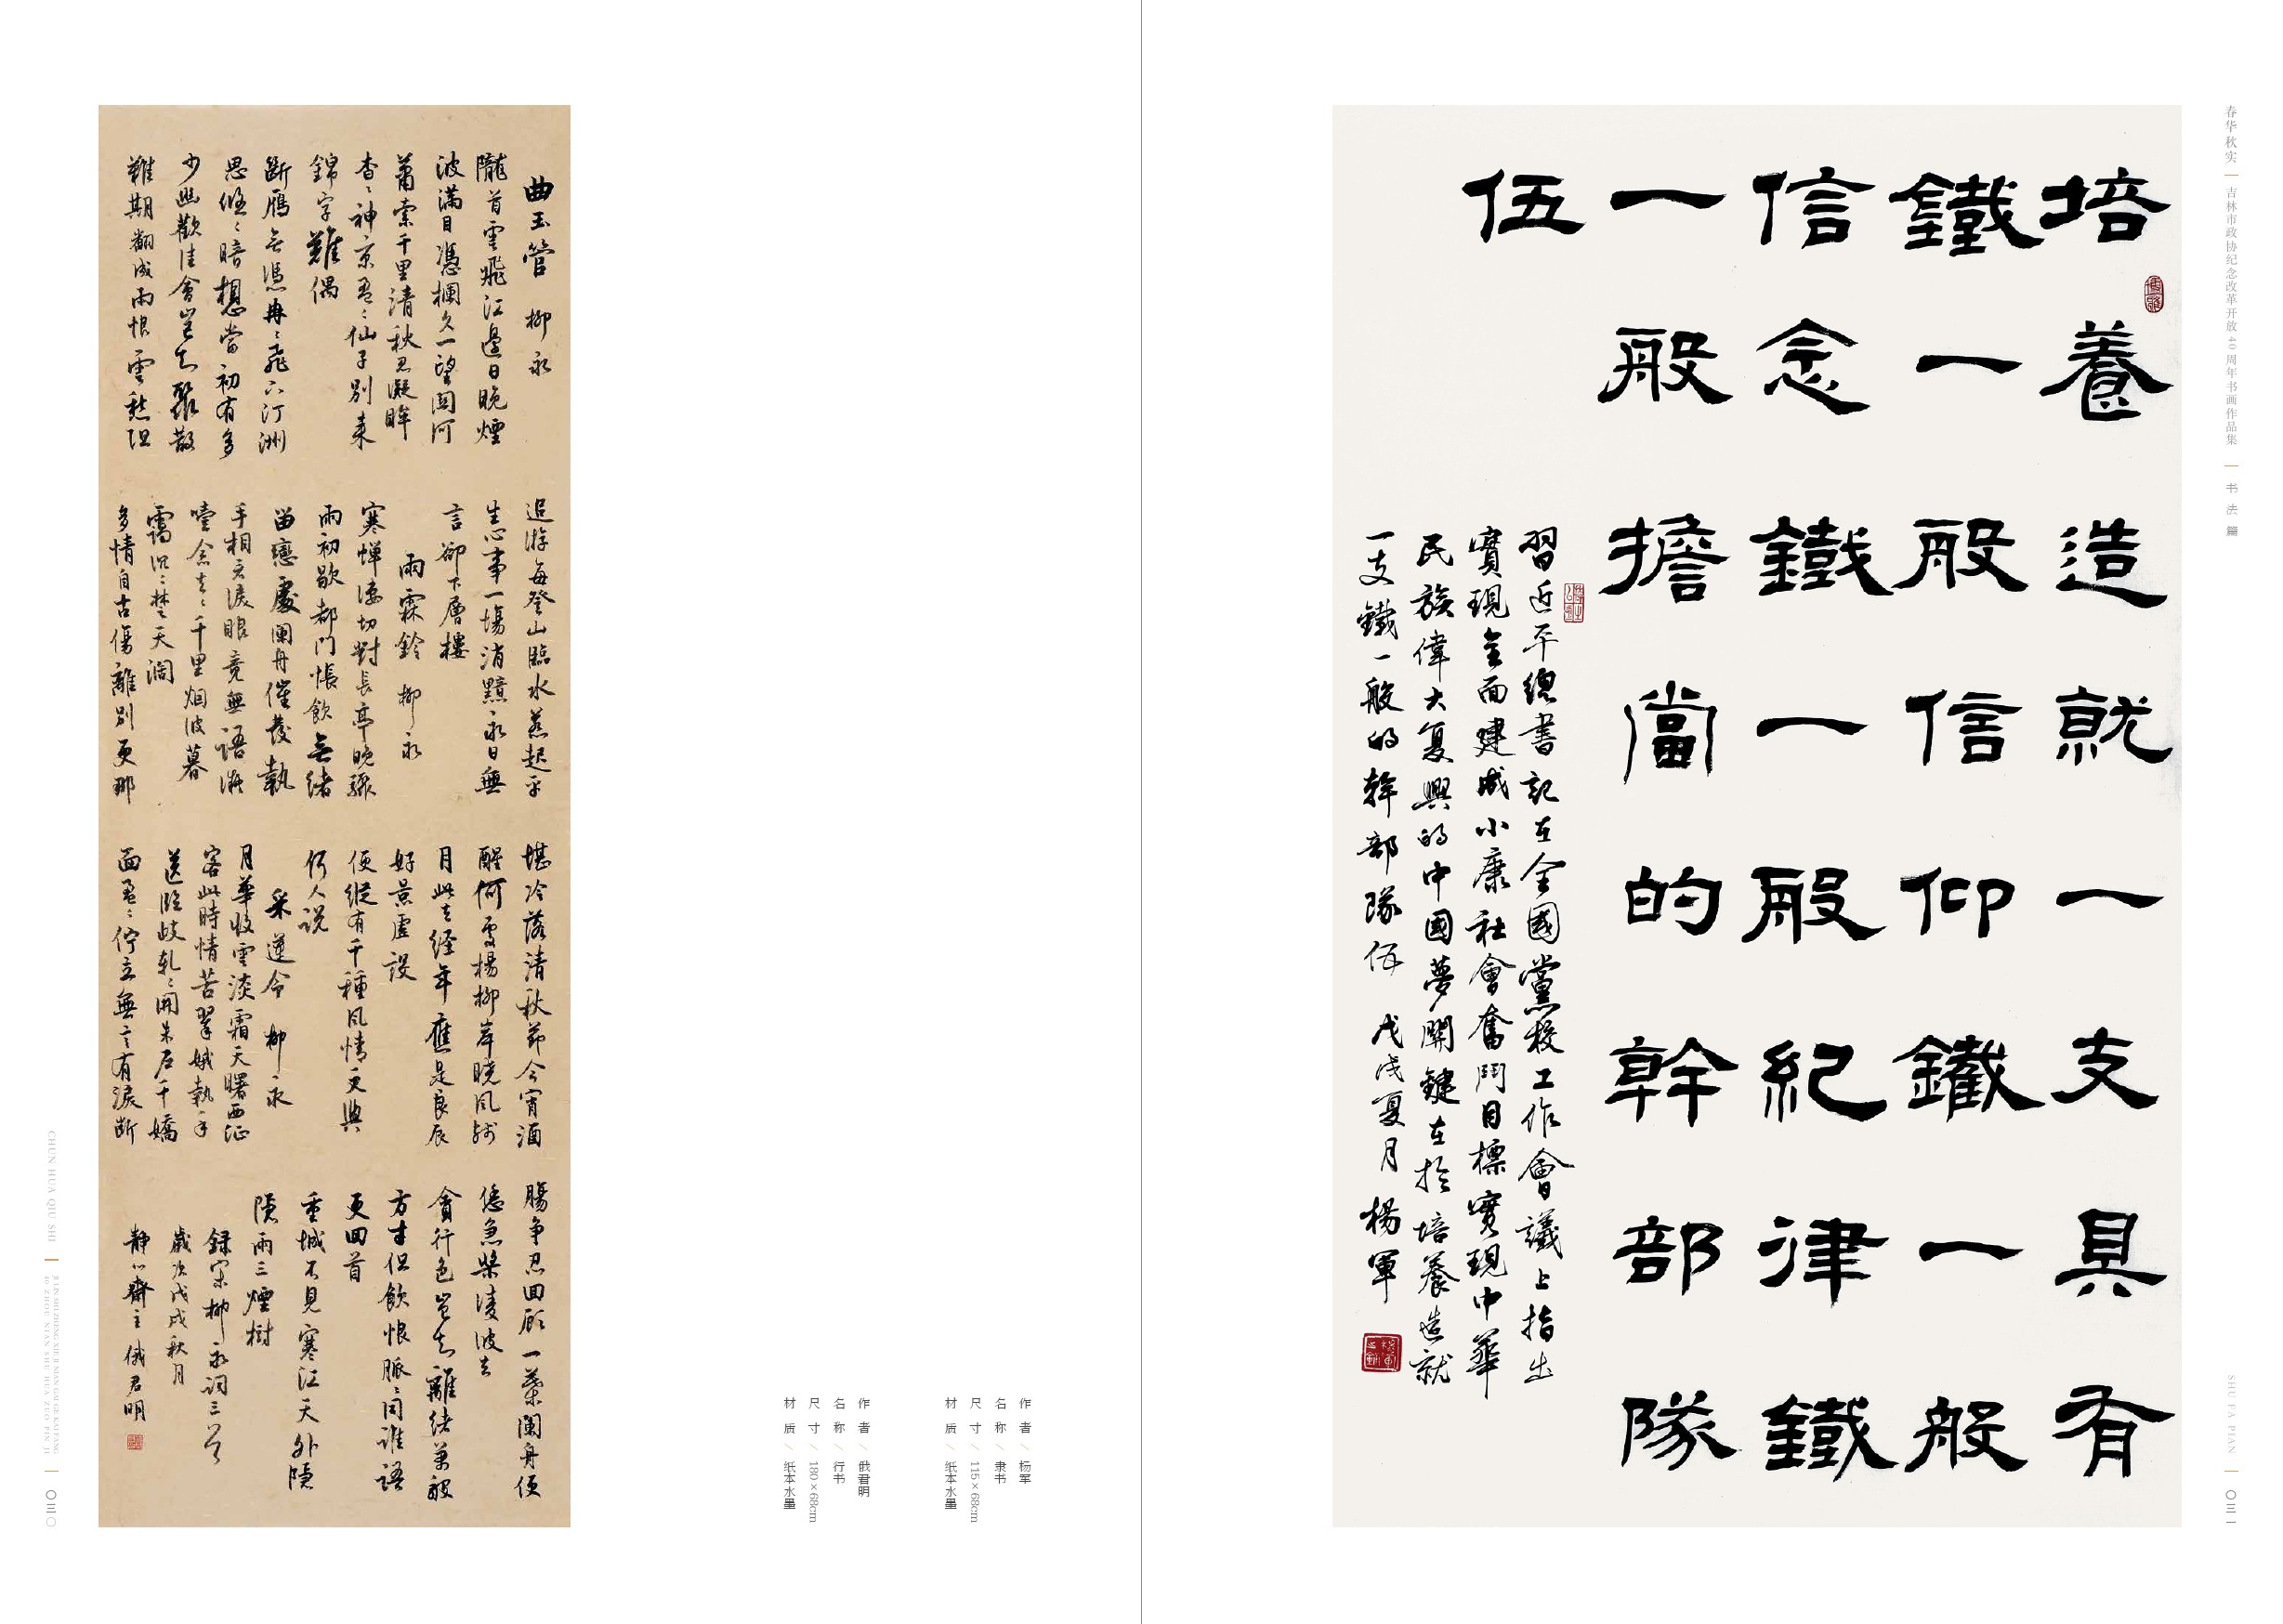 曲玉管 柳永
隴首雲飛江邊日晚煙
波滿目憑欄久一望關河
蕭索千里清秋忍凝眸
杳〻神京盈〻仙子別來
錦字難偶
斷鴈無憑冉〻飛下汀洲
思悠〻暗想當初有多
少幽歡佳會豈知聚散
難期翻成雨恨雲愁阻
追游每登山臨水惹起平
生心事一場消黯永日無
言卻下層樓
雨霖鈴 柳永
寒蟬凄切對長亭晚驟
雨初歇都門悵飲無緒
留戀處蘭舟催發執
手相看淚眼竟無語凝
噎念去〻千里烟波暮
靄沉〻楚天闊
多情自古傷離別更那
堪冷落清秋節今宵酒
醒何處楊柳岸曉風殘
月此去經年應是良辰
好景虛設
便縱有千種風情更與
何人說
采蓮令 柳永
月華收雲淡霜天曙西征
客此時情苦翠娥執手
送臨歧軋〻開朱戶千嬌
面盈〻佇立無言有淚斷
腸爭忍回顧一葉蘭舟便
恁急槳凌波去
貪行色豈知離緒萬般
方寸但飲恨脈〻同誰語
更回首
重城不見寒江天外隱
隱兩三煙樹
録宋柳永詞三首
歲次戊戌秋月
靜心齋主 俄君明
作者/杨军
名称/隶书
尺寸/115×68cm
材质/纸本水墨
作者/俄君明
名称/行书
尺寸/180×68cm
材质/纸本水墨
CHUN HUA QIU SHI
JI LIN SHI ZHENG XIE JI NIAN GAI GE KAI FANG
40 ZHOU NIAN SHU HUA ZUO PIN JI
〇三〇
培養造就一支具有
鐵一般信仰鐵一般
信念鐵一般紀律鐵
一般擔當的幹部隊
伍
習近平總書記在全國黨校工作會議上指出
實現全面建成小康社會奮鬥目標實現中華
民族偉大复興的中國夢關鍵在於培養造就
一支鐵一般的幹部隊伍 戊戌夏月 楊軍
春华秋实 吉林市政协纪念改革开放40周年书画作品集 书法篇
SHU FA PIAN
〇三一